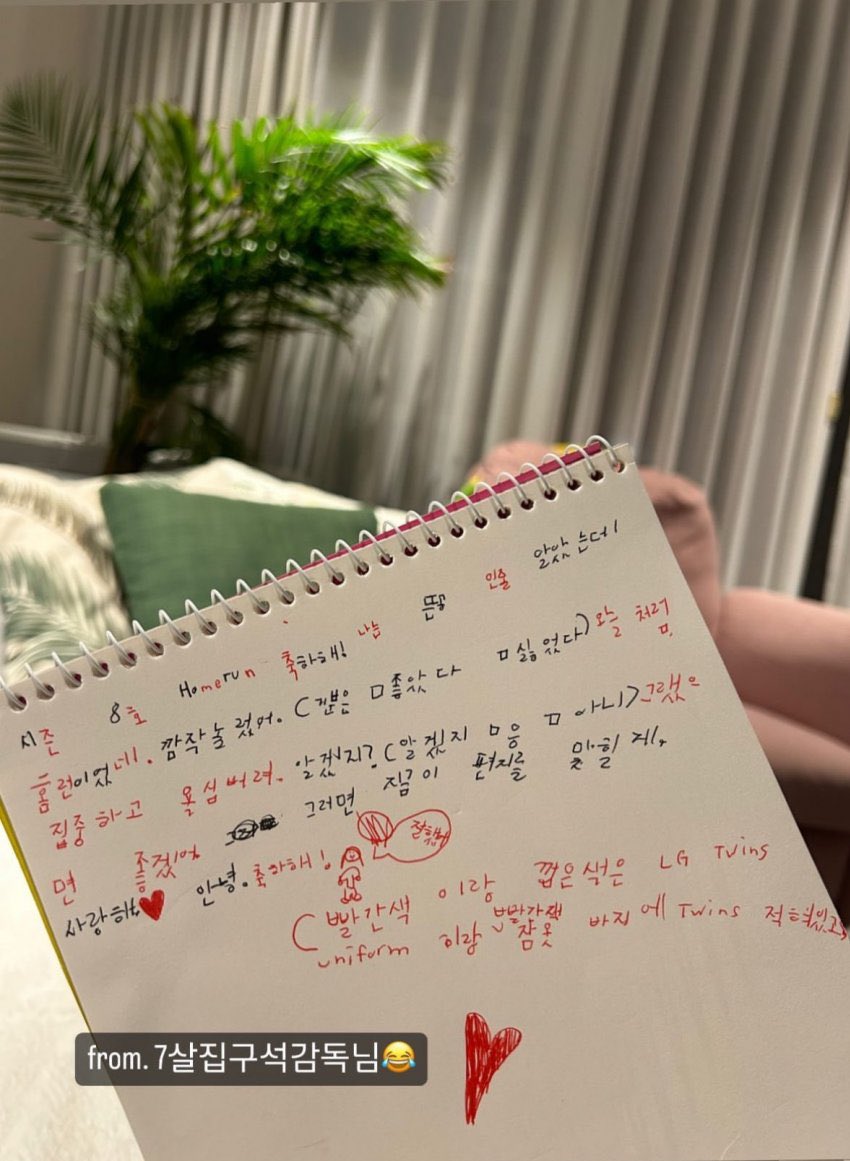 시즌 8호 Homerun 축하해! 나는 뜬공 인줄 알았는데
홈런이었네. 깜작놀랐어. (기분은 □좋았다 □싫었다) 오늘 처럼
집중하고 열심버려. 알겠지? (알겠지 □응 □아니) 그랬으
면 좋겠어 그러면 직금이 편지를 맞힐게.
사랑해 안녕. 축하해!
잘했어
(빨간색 이랑 껍은색은 LG Twins
uniform 이랑 빨간색 잠옷 바지에 Twins 적혀있고,
from. 7살집구석감독님😂